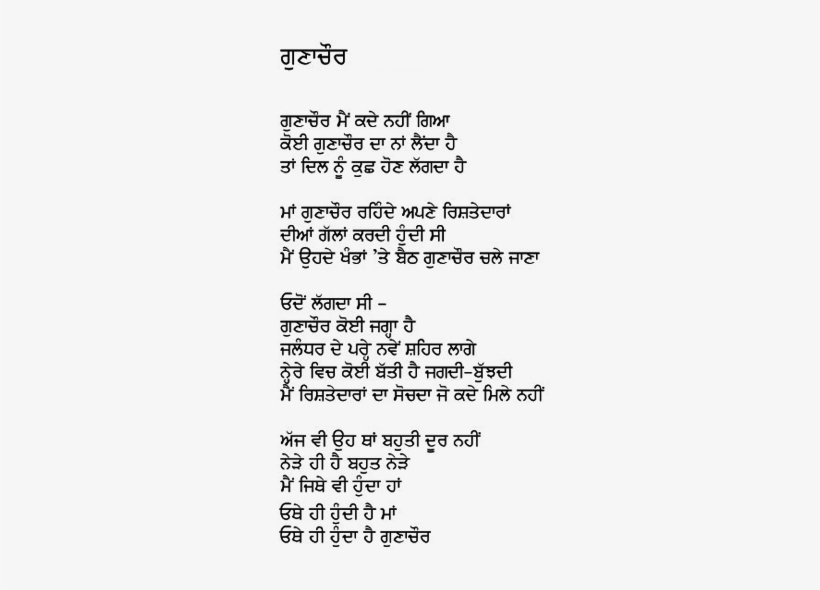 ਗੁਣਾਚੌਰ
ਗੁਣਾਚੌਰ ਮੈਂ ਕਦੇ ਨਹੀਂ ਗਿਆ
ਕੋਈ ਗੁਣਾਚੌਰ ਦਾ ਨਾਂ ਲੈਂਦਾ ਹੈ
ਤਾਂ ਦਿਲ ਨੂੰ ਕੁਛ ਹੋਣ ਲੱਗਦਾ ਹੈ
ਮਾਂ ਗੁਣਾਚੌਰ ਰਹਿੰਦੇ ਅਪਣੇ ਰਿਸ਼ਤੇਦਾਰਾਂ
ਦੀਆਂ ਗੱਲਾਂ ਕਰਦੀ ਹੁੰਦੀ ਸੀ
ਮੈਂ ਉਹਦੇ ਖੰਭਾਂ ’ਤੇ ਬੈਠ ਗੁਣਾਚੌਰ ਚਲੇ ਜਾਣਾ
ਓਦੋਂ ਲੱਗਦਾ ਸੀ –
ਗੁਣਾਚੌਰ ਕੋਈ ਜਗ੍ਹਾ ਹੈ
ਜਲੰਧਰ ਦੇ ਪਰ੍ਹੇ ਨਵੇਂ ਸ਼ਹਿਰ ਲਾਗੇ
ਨ੍ਹੇਰੇ ਵਿਚ ਕੋਈ ਬੱਤੀ ਹੈ ਜਗਦੀ-ਬੁੱਝਦੀ
ਮੈਂ ਰਿਸ਼ਤੇਦਾਰਾਂ ਦਾ ਸੋਚਦਾ ਜੋ ਕਦੇ ਮਿਲੇ ਨਹੀਂ
ਅੱਜ ਵੀ ਉਹ ਥਾਂ ਬਹੁਤੀ ਦੂਰ ਨਹੀਂ
ਨੇੜੇ ਹੀ ਹੈ ਬਹੁਤ ਨੇੜੇ
ਮੈਂ ਜਿਥੇ ਵੀ ਹੁੰਦਾ ਹਾਂ
ਓਥੇ ਹੀ ਹੁੰਦੀ ਹੈ ਮਾਂ
ਓਥੇ ਹੀ ਹੁੰਦਾ ਹੈ ਗੁਣਾਚੌਰ